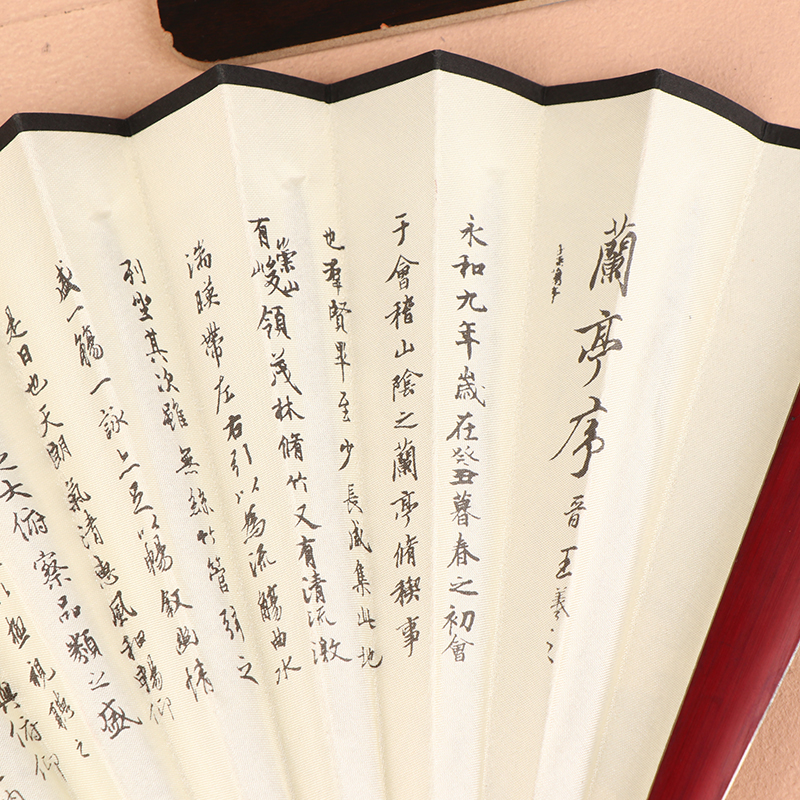 蘭亭序 晉 王羲之
永和九年歲在癸丑暮春之初會
于會稽山陰之蘭亭脩稧事
也羣賢畢至少長咸集此地
有崇山峻領茂林脩竹又有清流激
湍暎帶左右引以為流觴曲水
列坐其次雖無絲竹管弦之
盛一觴一詠亦足以暢敘幽情
是日也天朗氣清惠風和暢仰
之大俯察品類之盛
以極視聽之
俯仰